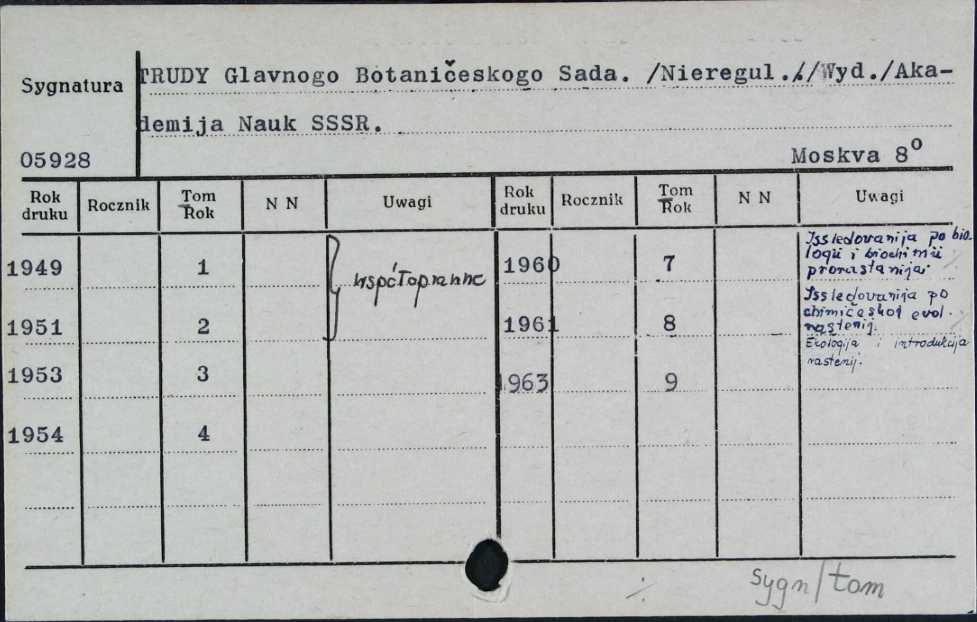 TRUDY Glavnogo Botaničeskogo Sada. /Nieregul.//Wyd./Aka-
Sygnatura
demija Nauk SSSR.
05928
Moskva 8°
Rok druku Rocznik Tom Rok N N Uwagi Rok druku Rocznik Tom Rok N N Uwagi
1949 1 współoprawne 1960 7 Issledovanija po bio-
logii i biochimii
prorastanija.
1951 2 1961 8 Issledovanija po
chimičeskoj evol.
rastenij.
1953 3 1963 9 Ekologija i introdukcija
rastenij.
1954 4
sygn/tom